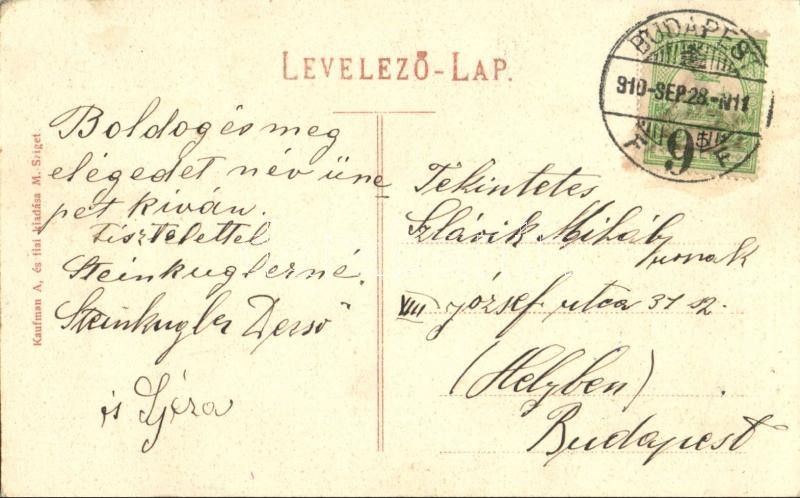 LEVELEZŐ-LAP.
Kaufman A, és fiai kiadása M. Sziget
BUDAPEST
910-SEP.28-N11
9
Boldog és meg
elégedet név üne
pet kiván.
Tisztelettel
Steinkuglerné,
Steinkugler Dezső
is Géza
Tekintetes
Szlávik Mihály
urnak
VIII József utca 37 sz.
(Helyben)
Budapest